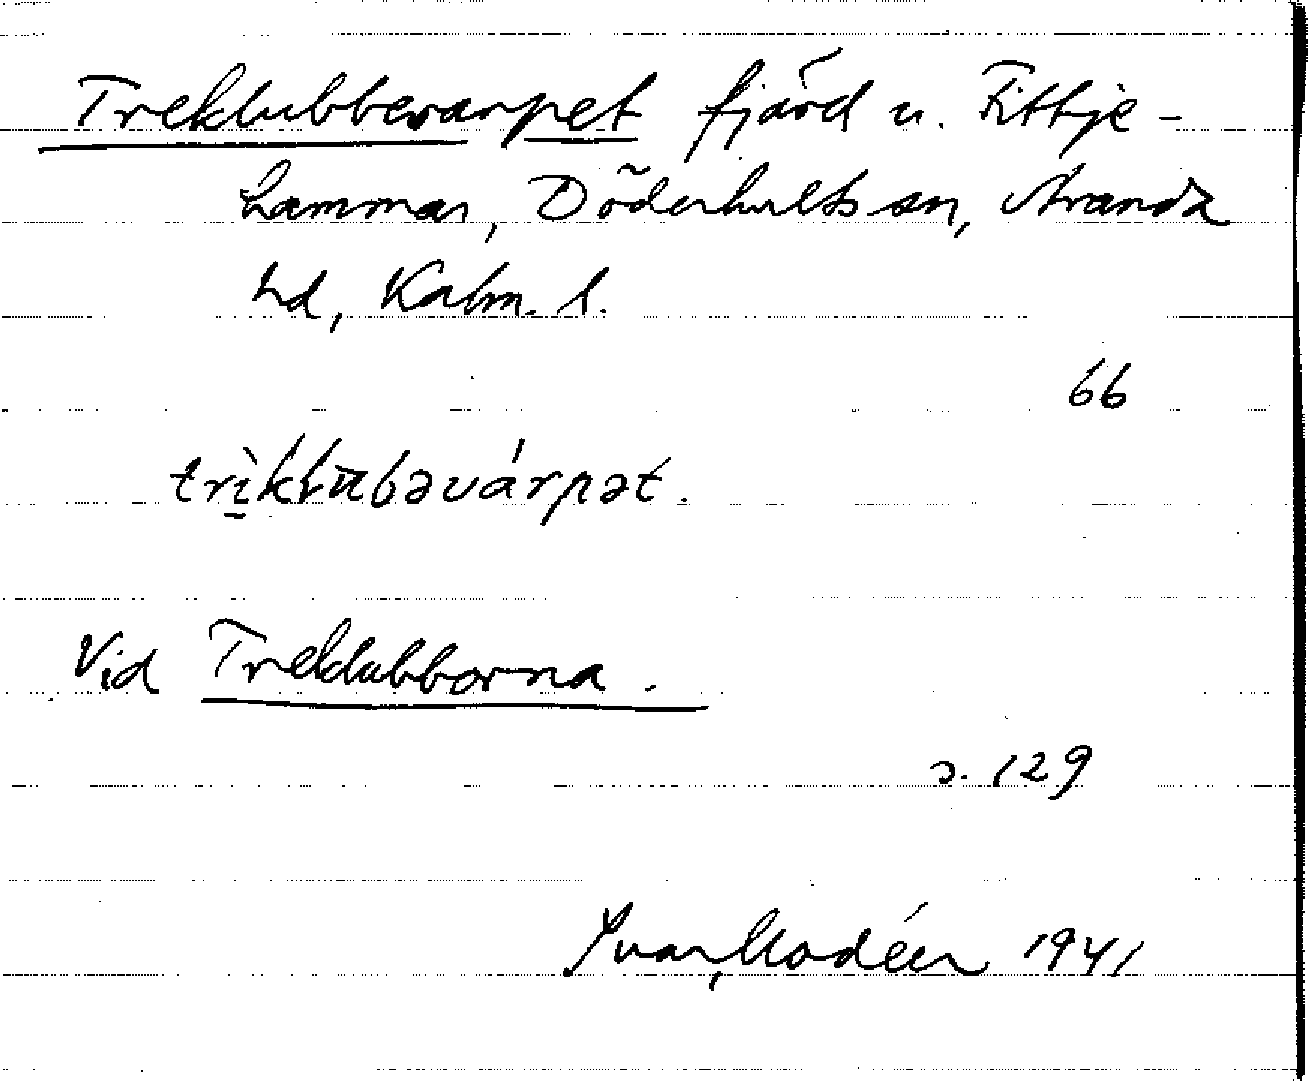 Treklubbevarpet fjärd u. Fittje-
hammar, Döderhults sn, Stranda
hd, Kalm. l.
66
trìklubəvárpət.
Vid Treklubborna.
s. 129
Ivar Modéer 1941